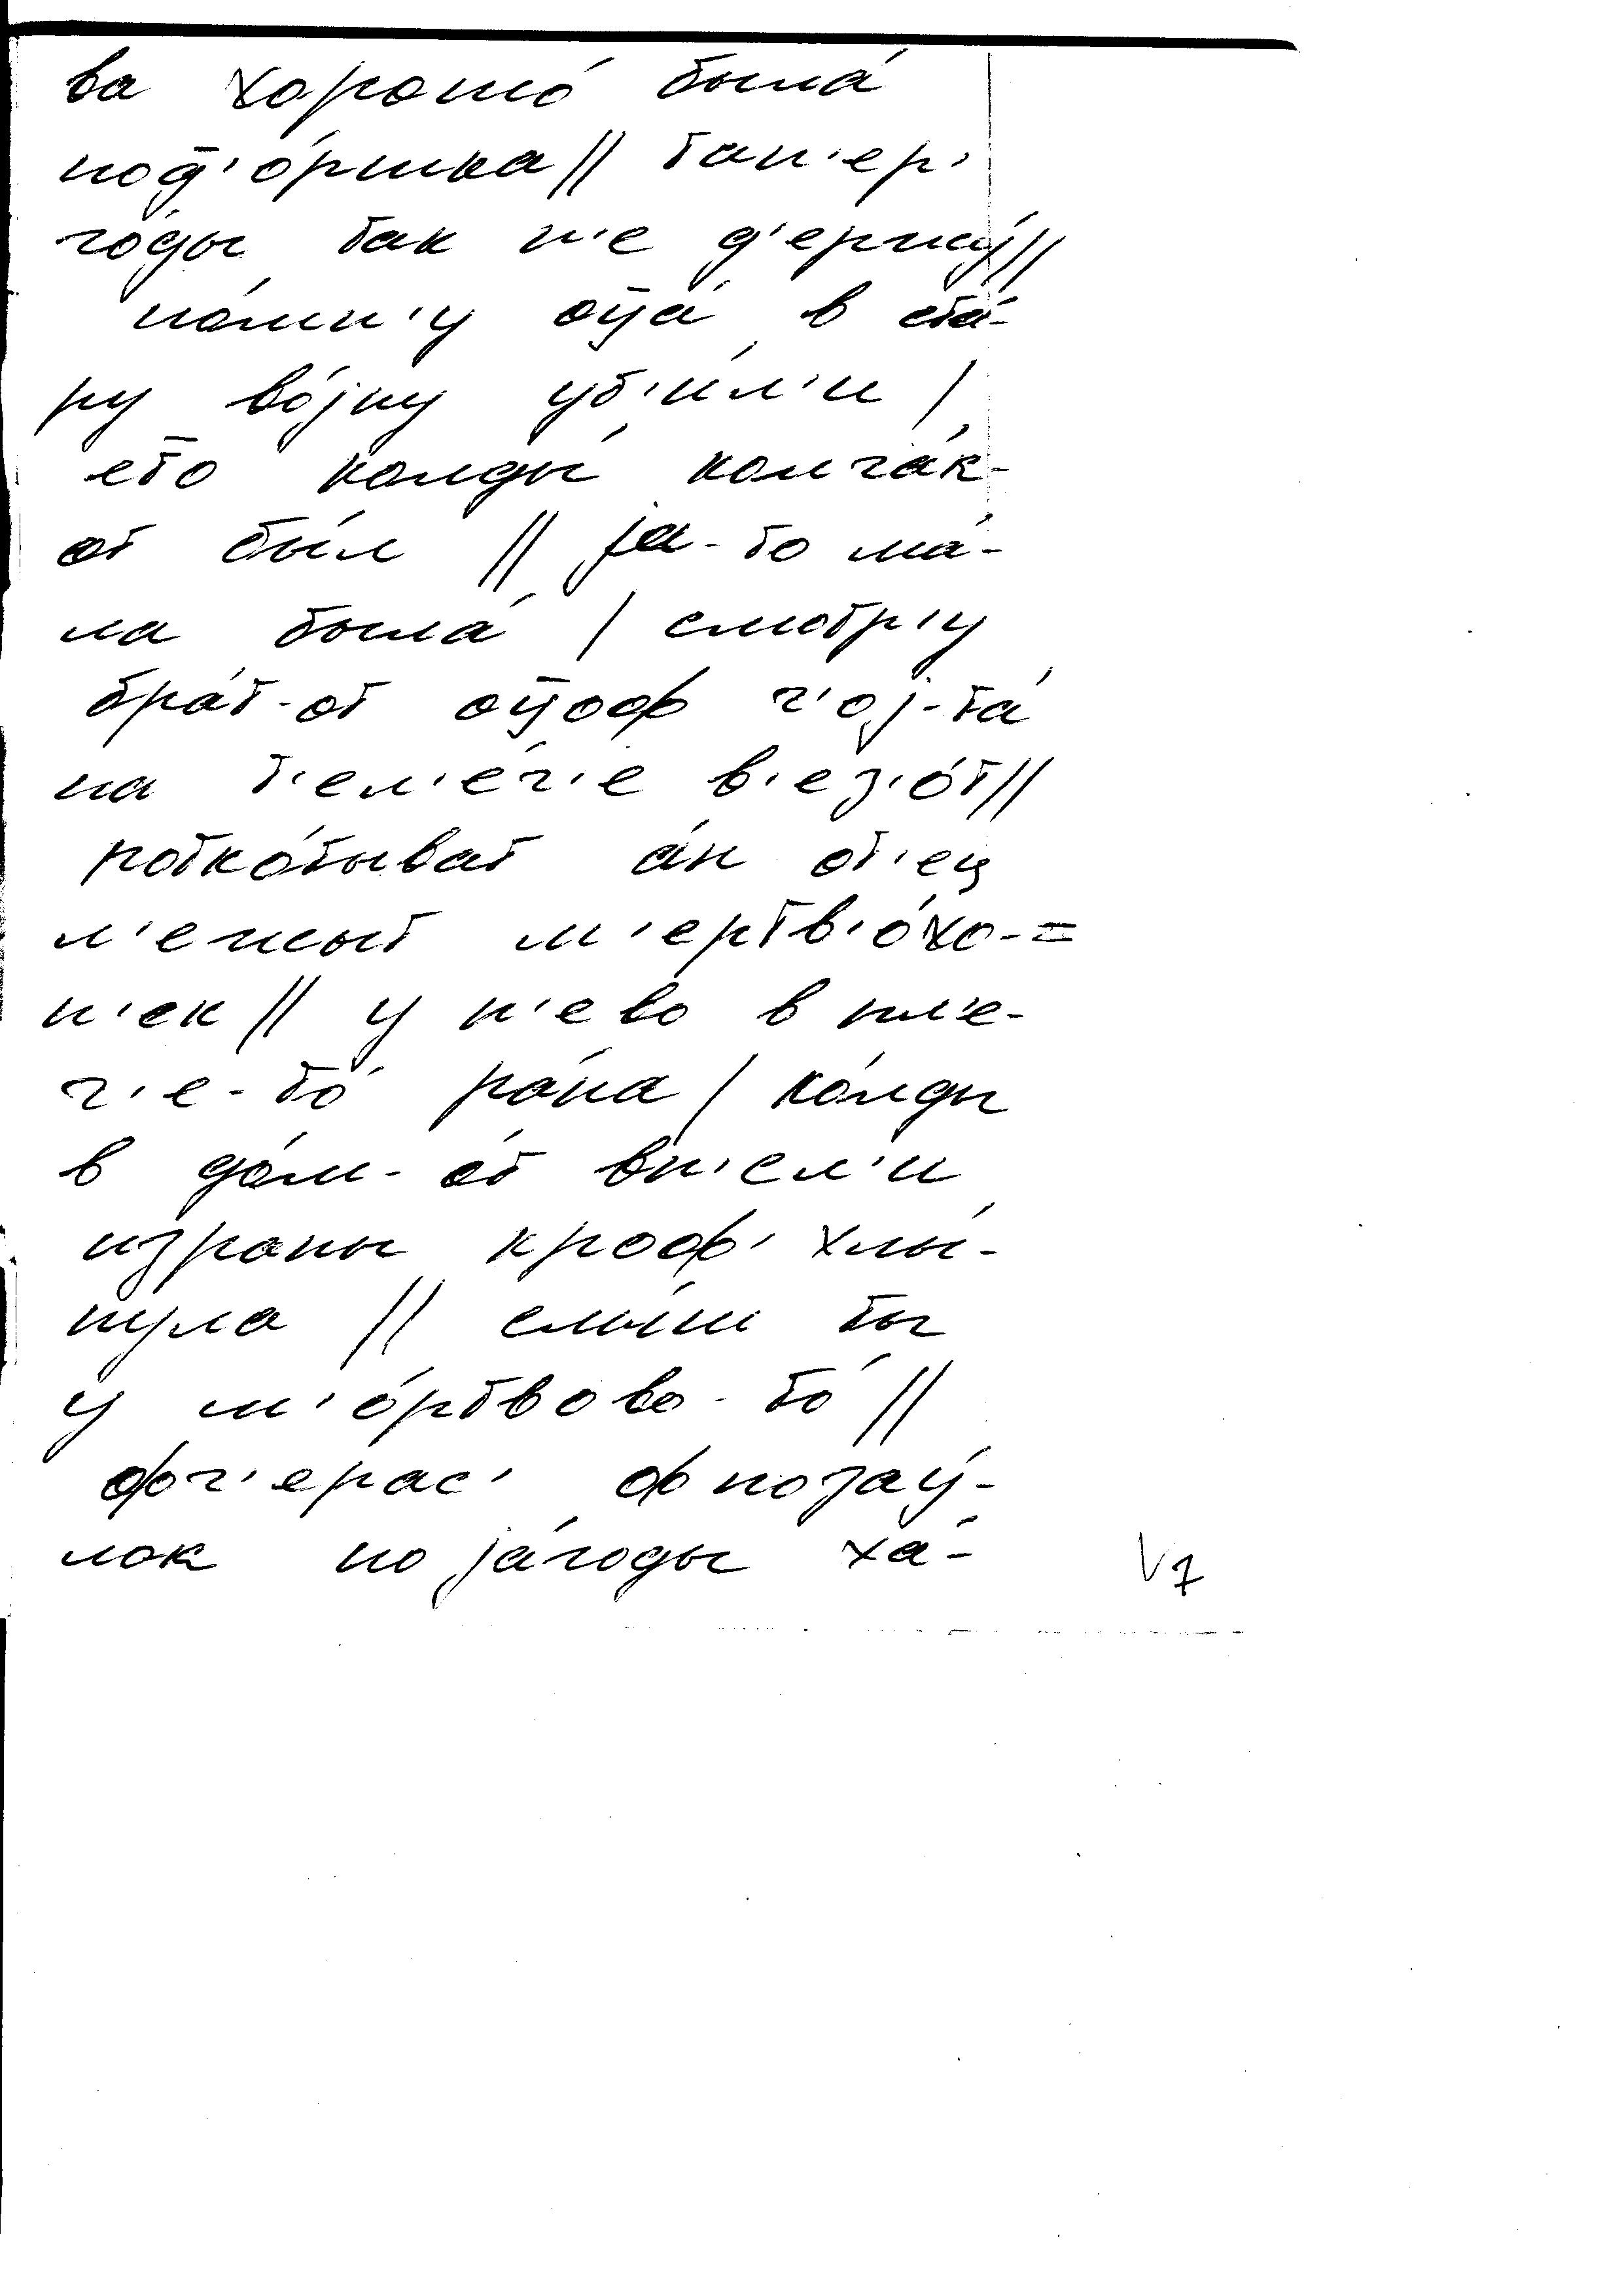 ва хорошо́ была́
под'о́ршка // топ'ер'
го́ды так н'е д'ержу́ //
помн'у оц̄а́ в ста́-
ру во́јну уб'и́л'и /
ето колды́ колча́к-
от бы́л // ја-то ма́-
ла была́ / смотр'у
бра́т-от оц̄оф ч'ој-та́
на т'ел'е́г'е в'ез'о́т //
потко́тыват а́н от'ец
л'ежыт м'ертв'о́хо-=
н'ек // у н'ево в пл'е-
ч'е-то́ ра́на / ко́лды
в до́м-от вн'есл'и
израны кроф' хлы́-
нула // слы́ш ты
у м'о́ртвово-то́ //
фч'ерас' ф позау́-
лок по ја́годы ха́-
V7